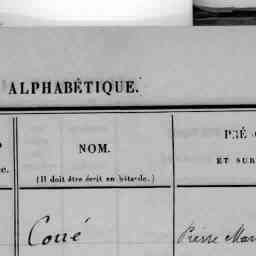 ALPHABÉTIQUE.
NOM.
PRÉ
ET SUR
(Il doit être écrit en bâtarde.)
ce.
Corré
Pierre Mar